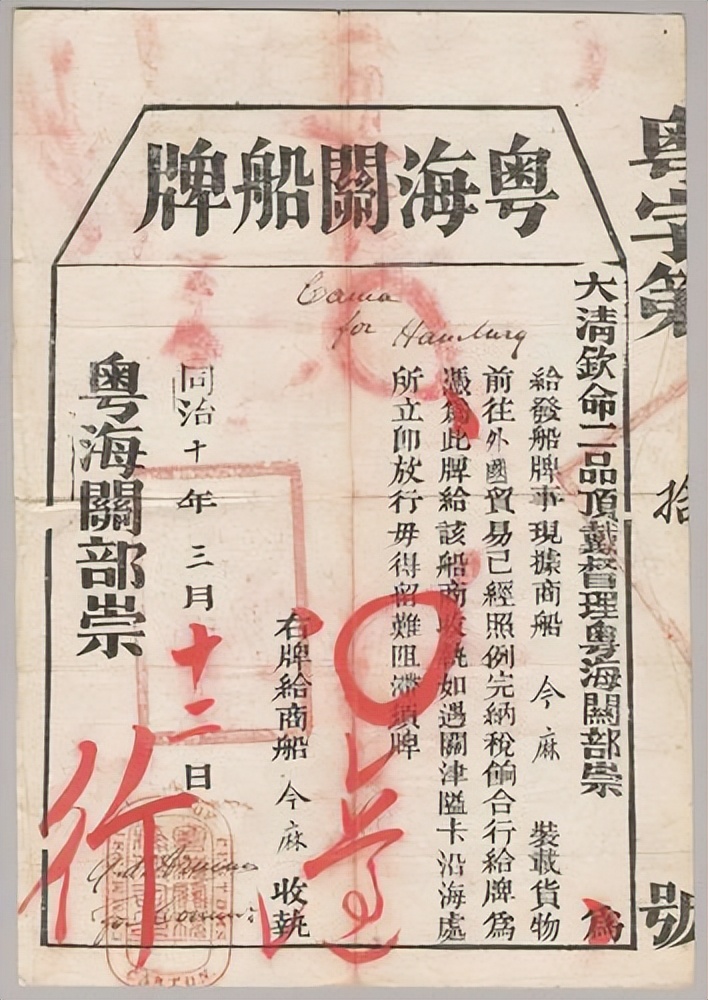 粵字第
拾
號
粵海關船牌
Cama
for Hamburg
大清欽命二品頂戴督理粵海關部崇
為
給發船牌事現據商船 今麻 裝載貨物
前往外國貿易已經照例完納稅餉合行給牌為
憑為此牌給該船商收執如遇關津隘卡沿海處
所立即放行毋得留難阻滯須牌
右牌給商船 今麻 收執
遵
同治十年三月十二日
粵海關部崇
行
CUSTOMS
CANTON